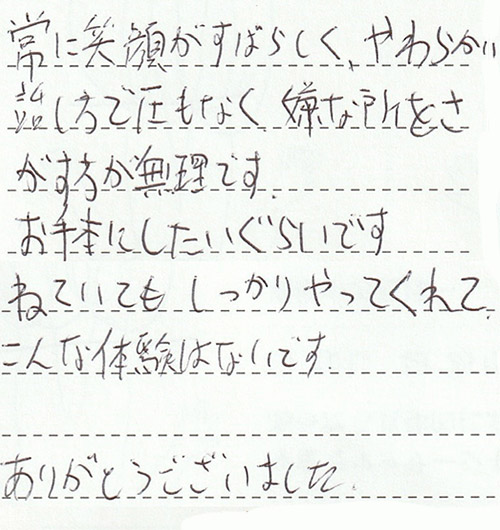 常に笑顔がすばらしく、やわらかい
話し方で圧もなく、嫌な所をさ
がす方が無理です.
お手本にしたいぐらいです
ねていても しっかりやってくれて.
こんな体験はないです.
ありがとうございました.